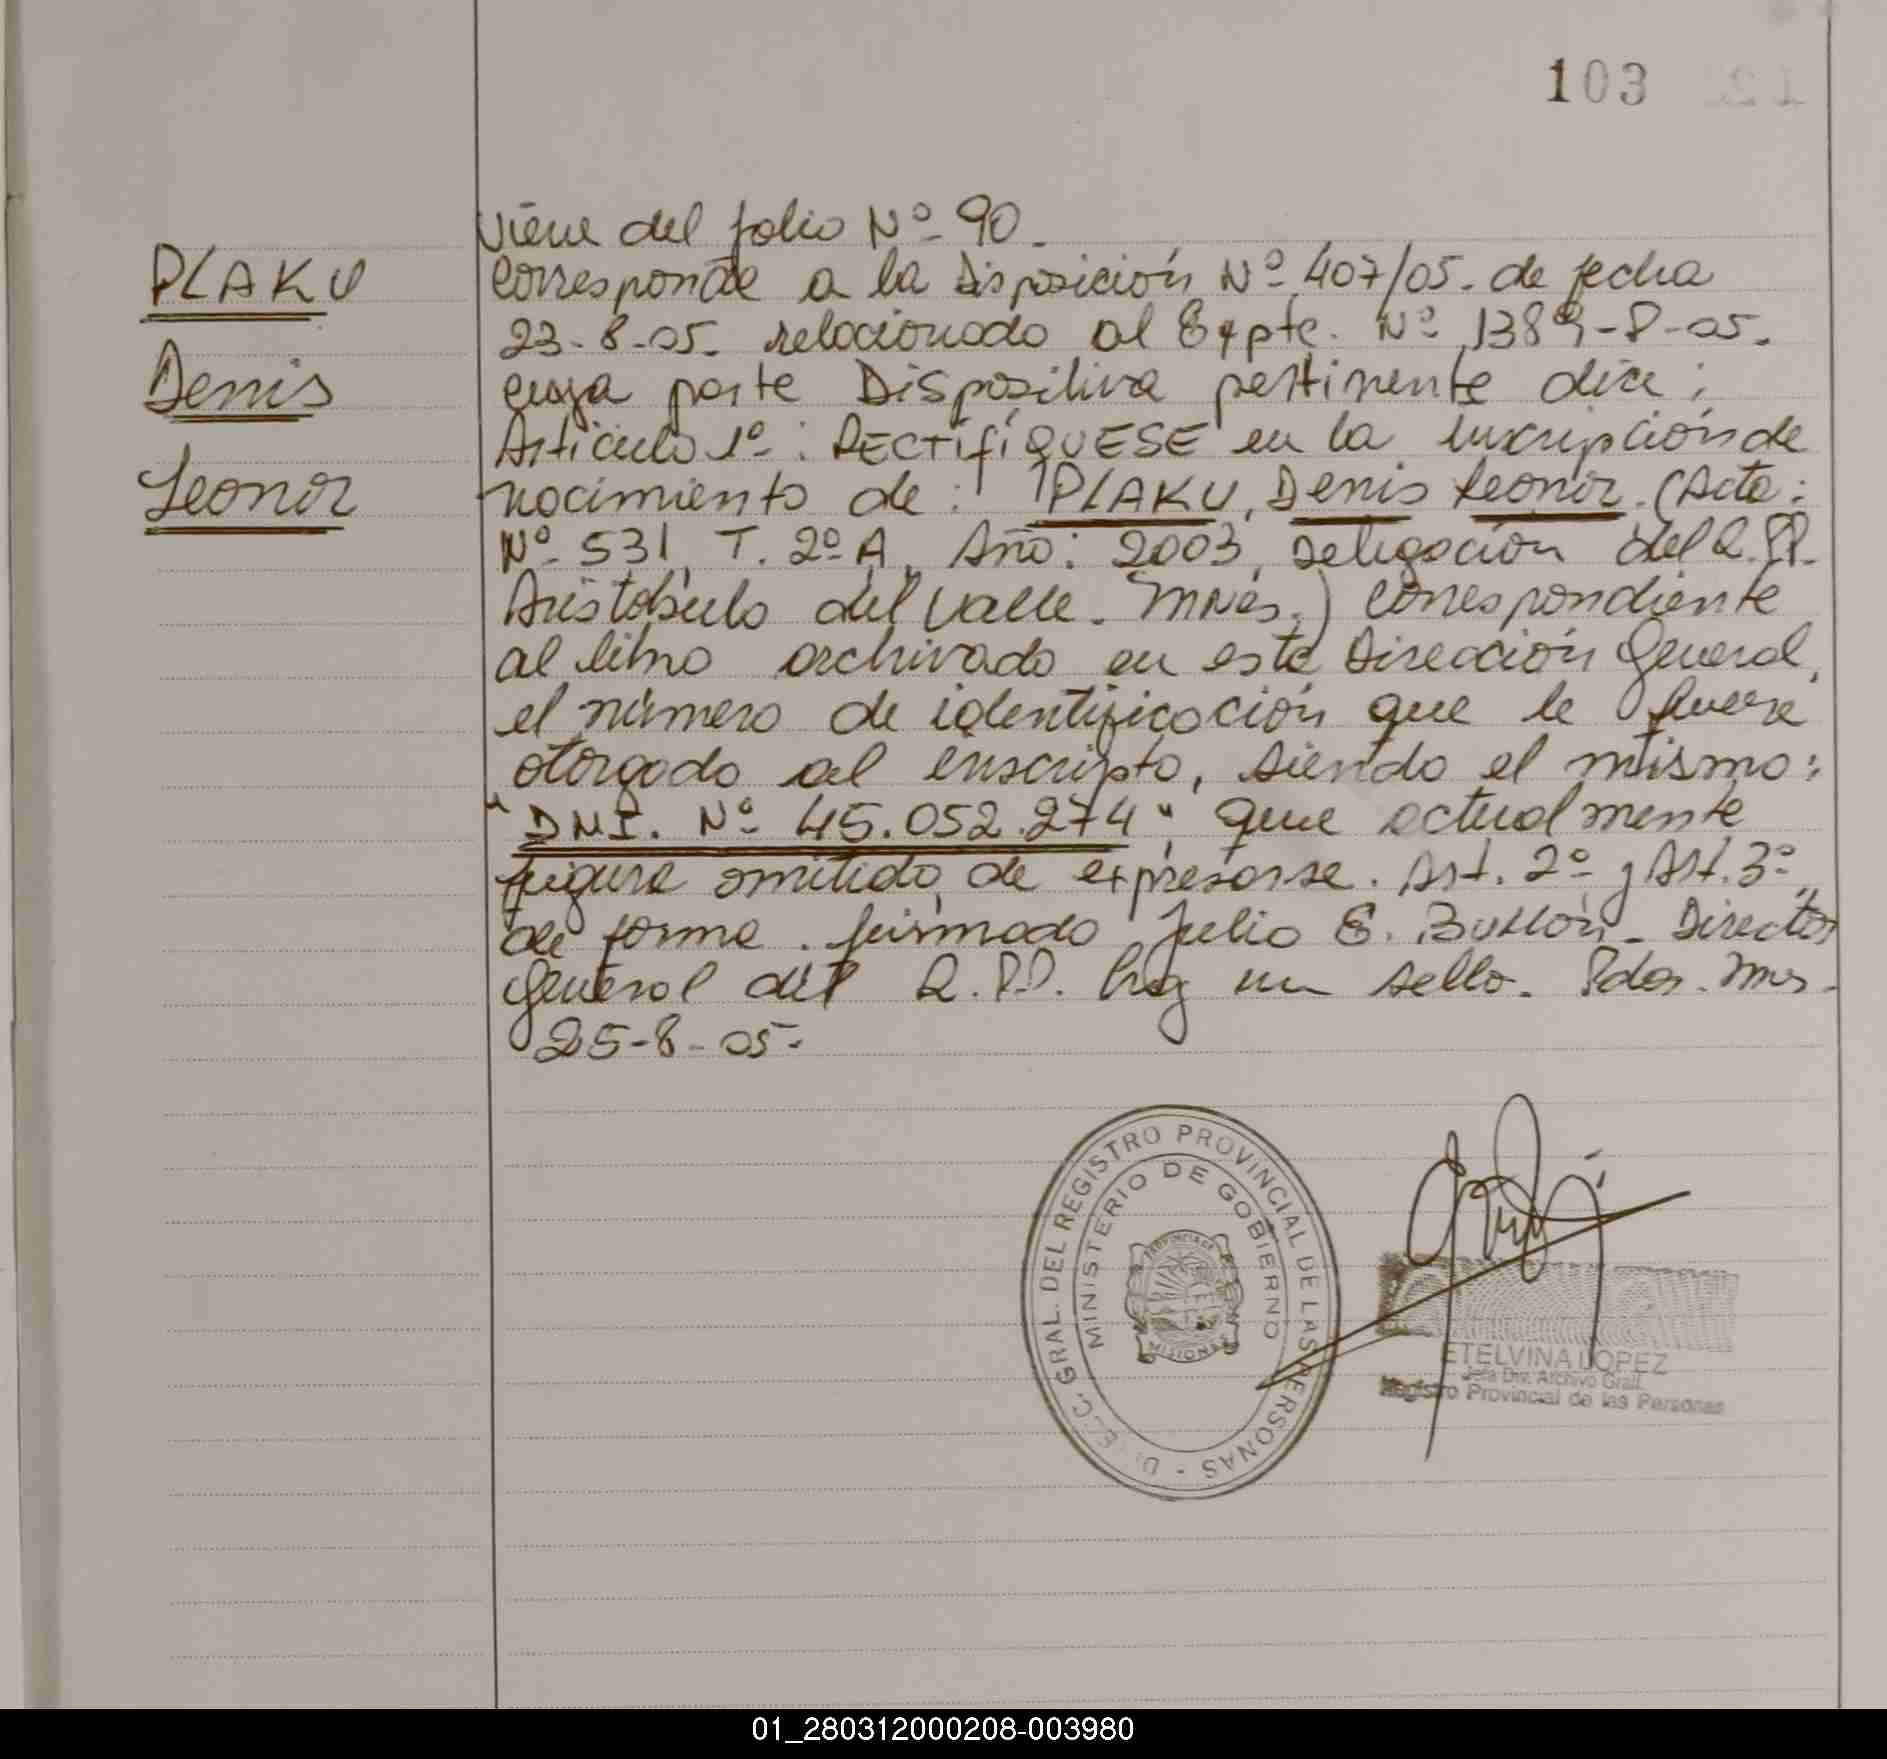 103
Viene del folio Nº 90.
PLAKU
Corresponde a la Disposición Nº 407/05. de fecha
23-8-05. relacionado al Expte. Nº 1389-P-05.
Denis
cuya parte Dispositiva pertinente dice:
Artículo 1º: RECTIFIQUESE en la inscripción de
Leonor
nacimiento de: PLAKU, Denis Leonor. (Acta:
Nº 531, T. 2º A, Año: 2003, Delegación del R.PP.
Aristóbulo del Valle. Mnes.) Correspondiente
al libro archivado en esta Dirección General,
el número de identificación que le fuere
otorgado al inscripto, siendo el mismo:
"DNI. Nº 45.052.274", que actualmente
figura omitido de expresarse. Art. 2º y Art. 3º
de forma. firmado Julio E. Director
General del R.P.P. hay un sello. Pdas. Mns.
25-8-05.
DIRECC. GRAL. DEL REGISTRO PROVINCIAL DE LAS PERSONAS -
MINISTERIO DE GOBIERNO
PROVINCIA DE
MISIONES
ETELVINA LOPEZ
Jefa Div. Archivo Gral.
Registro Provincial de las Personas
01_280312000208-003980